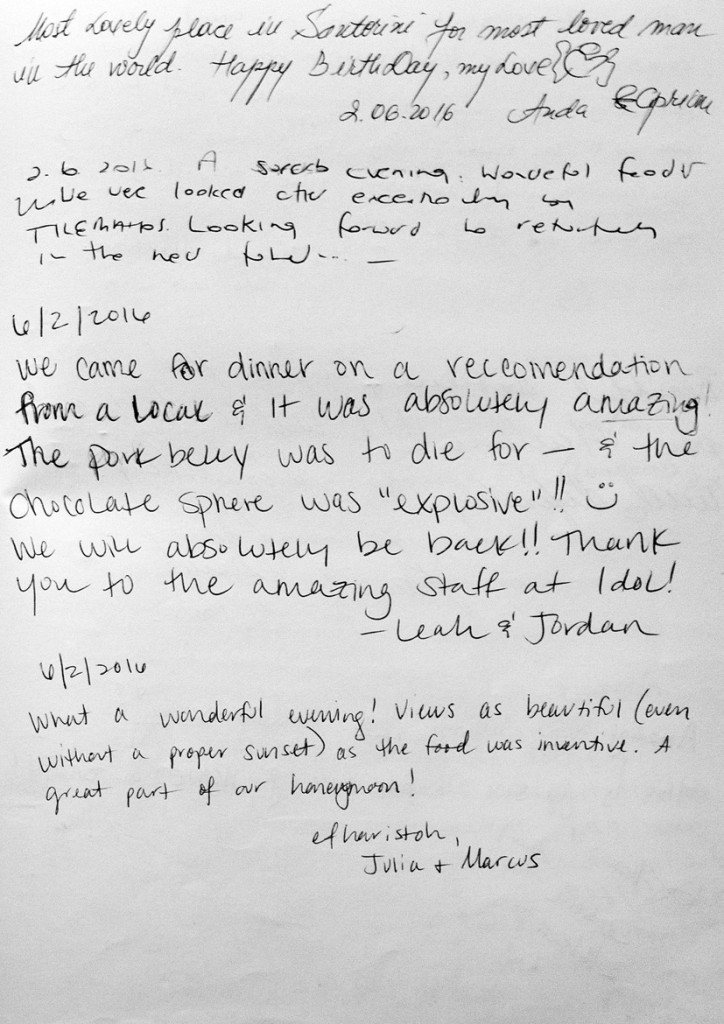 Most Lovely place in Santorini for most loved man
in the world. Happy BirthDay, my Love
2.06.2016 Anda
2.6.2016. A superb evening. Wonderful food &
We were looked after exceptionally by
TILEMAHOS. Looking forward to returning
in the near future... —
6/2/2016
We came for dinner on a reccomendation
from a local & it was absolutely amazing!
The pork belly was to die for — & the
chocolate sphere was "explosive"!! :)
We will absolutely be back!! Thank
you to the amazing staff at Idol!
- Leah & Jordan
6/2/2016
What a wonderful evening! Views as beautiful (even
without a proper sunset) as the food was inventive. A
great part of our honeymoon!
efharistoh,
Julia + Marcus